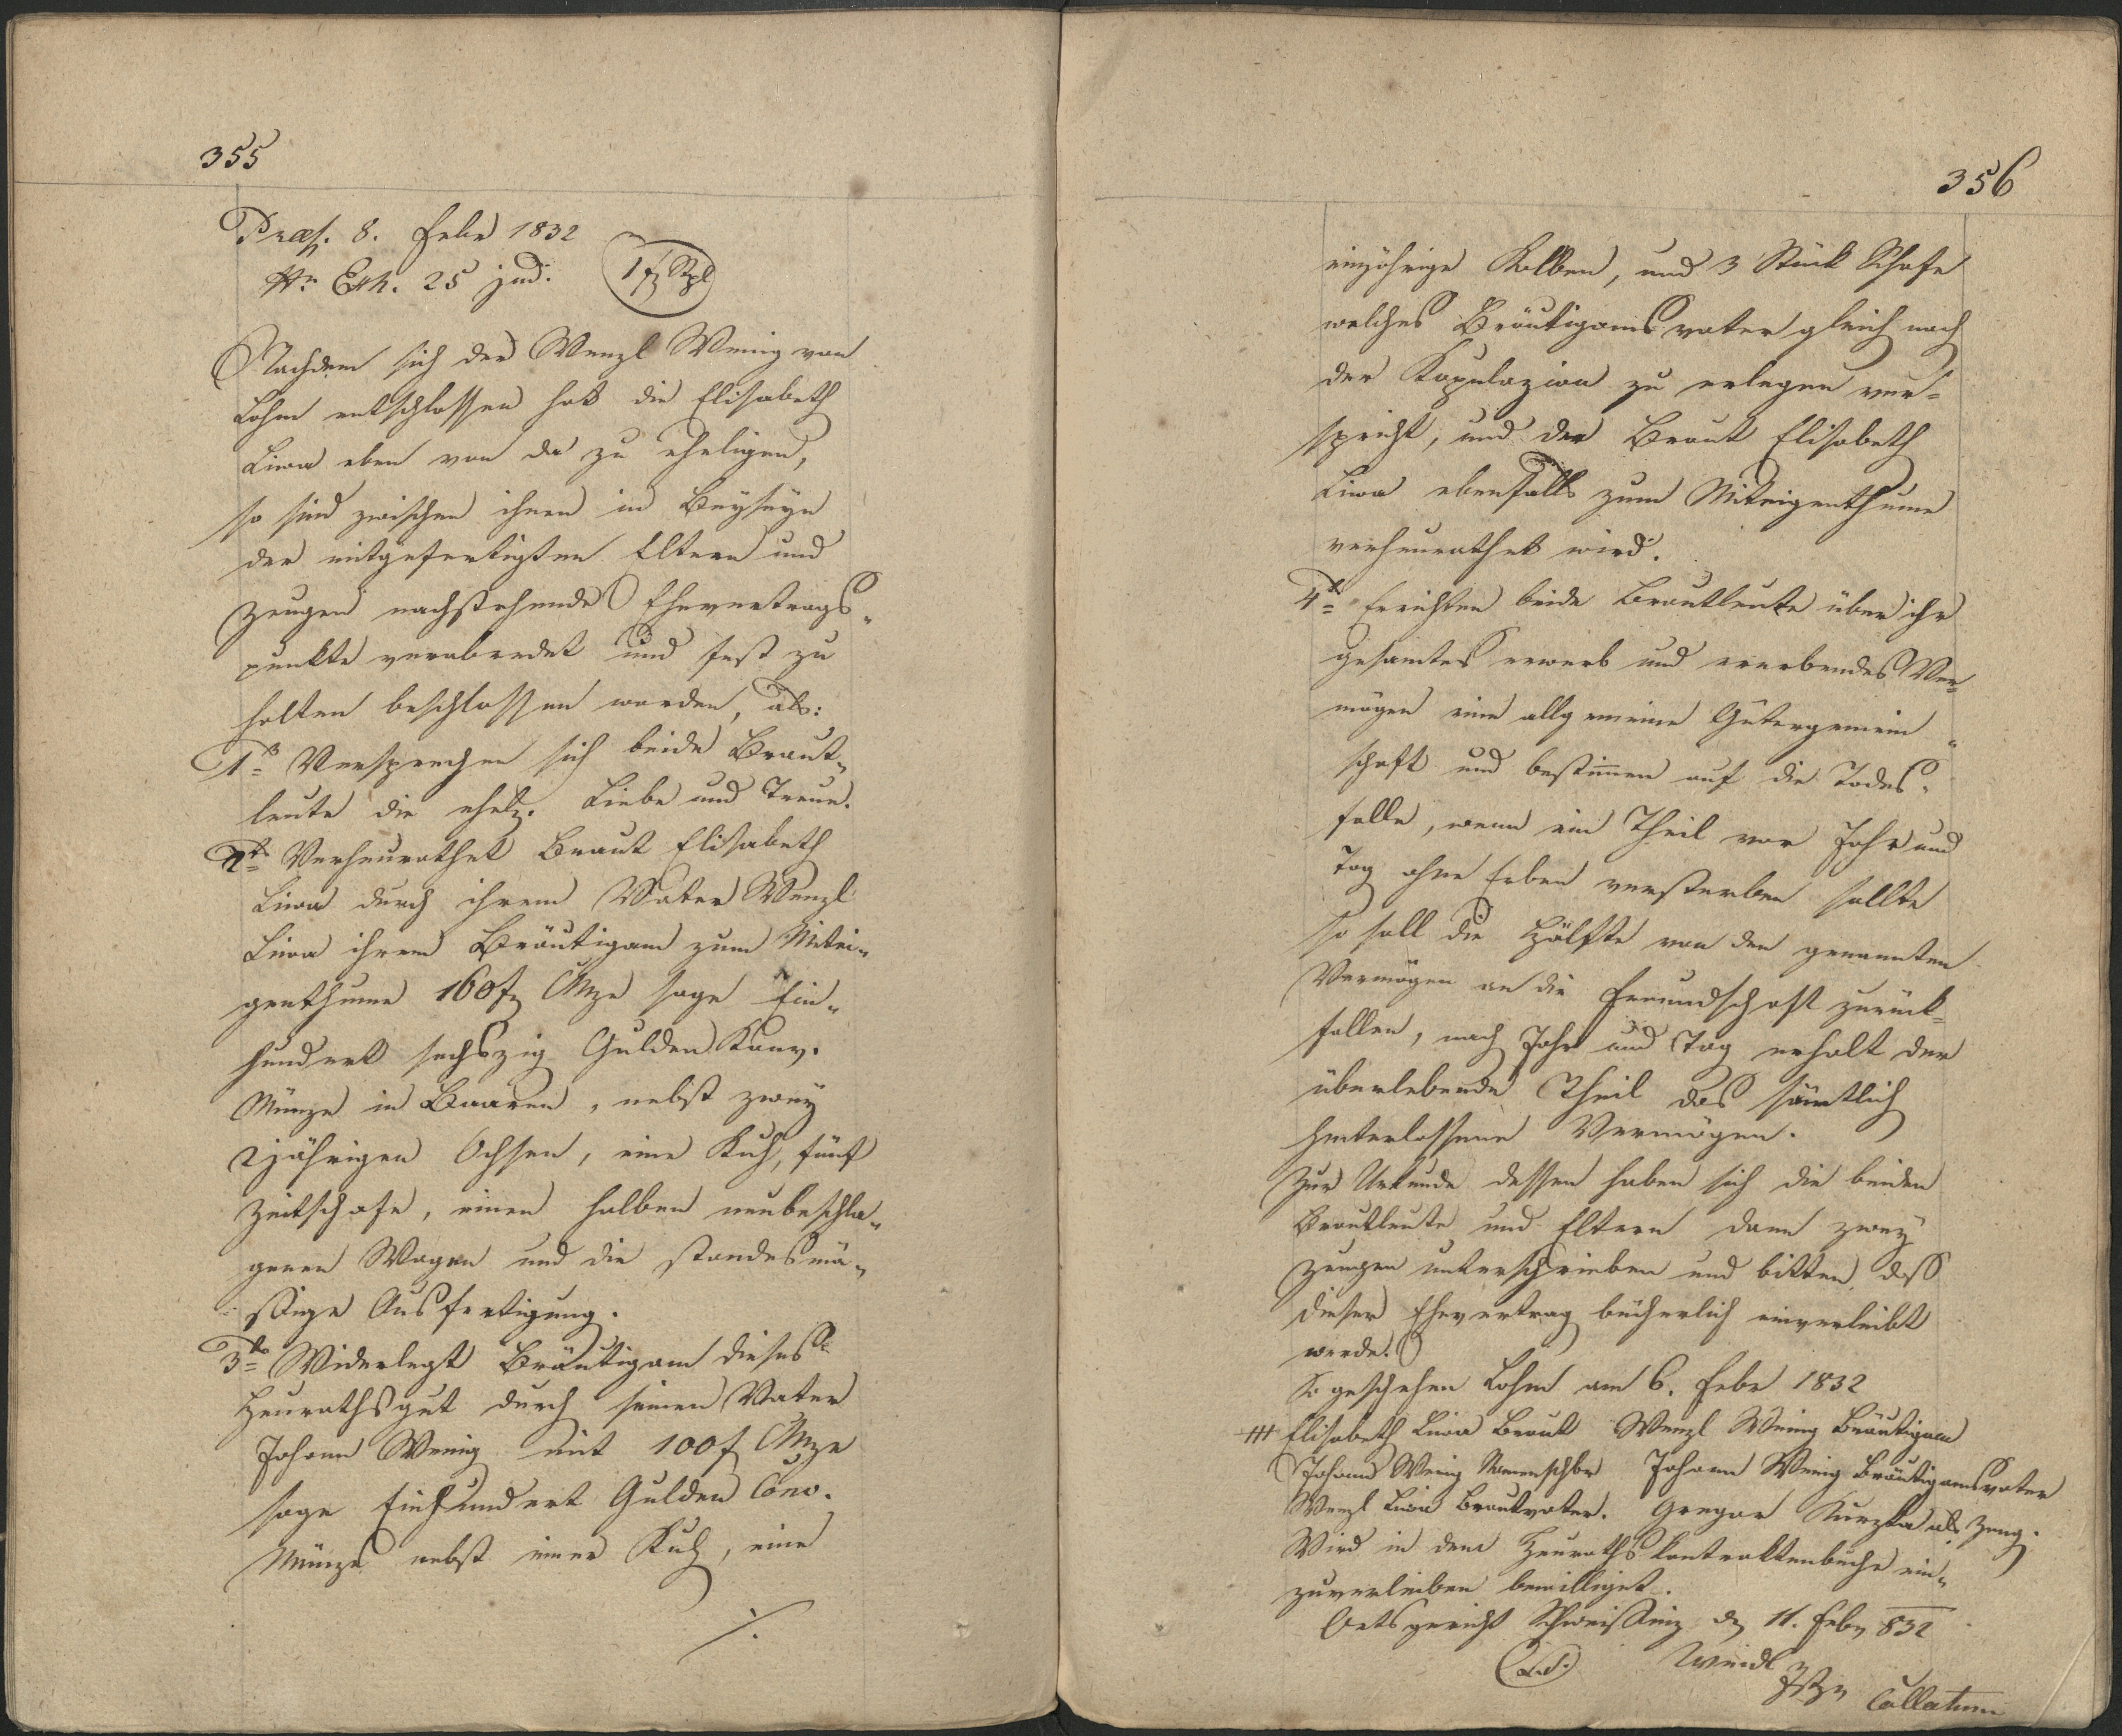 355
Præs. 8. Febr 1832
Nr. Exh. 25 jud.
1 f Stpl
Nachdem sich der Wenzl Wenig von
Lohm entschlossen hat die Elisabeth
Liwa eben von da zu eheligen,
so sind zwischen ihnen in Beyseyn
der mitgefertigten Eltern und
Zeugen nachstehende Ehevertrags„
punkte verabredet und fest zu
halten beschlossen worden, als:
1tens Versprechen sich beide Braut„
leute die ehel. Liebe und Treue.
2tens Verheurathet Braut Elisabeth
Liwa durch ihrem Vater Wenzl
Liwa ihrem Bräutigam zum Mitei„
genthume 160 f CMze sage Ein„
hundert sechszig Gulden Konv.
Münze in Baaren, nebst zwey
2jährigen Ochsen, eine Kuh, fünf
Zeitschafe, einen halben neubeschla„
genen Wagen und die standesmä„
ssige Ausfertigung.
3tens Widerlegt Bräutigam dieses
Heurathsgut durch seinen Vater
Johann Wenig mit 100 f CMze
sage Einhundert Gulden Conv.
Münze nebst einer Kuh, eine
./.
356
einjöhrige Kalben, und 3 Stück Schafe
welches Bräutigams vater gleich nach
der Kopulazion zu erlegen ver=
spricht, und der Braut Elisabeth
Liwa ebenfalls zum Miteigenthume
verheurathet wird.
4tens Errichten beide Brautleute über ihr
gesamtes erwerb und ererbendes Ver=
mögen eine allgemeine Gütergemein„
schaft und bestimmen auf die Todes„
falle, wenn ein Theil vor Jahr und
Tag ohne Erben versterben sollte
so soll die Hälfte von den genannten
Vermögen an die Freundschaft zurück=
fallen, nach Jahr und Tag erhalt der
überlebende Theil das sämtlich
hinterlassene Vermögen.
Zur Urkunde dessen haben sich die beiden
Brautleute und Eltern dann zwey
Zeugen unterschrieben und bitten dß
dieser Ehevertrag bücherlich einverleibt
werde.
So geschehen Lohm am 6. Febr 1832
+++ Elisabeth Liwa Braut Wenzl Wenig Bräutigam
Johann Wenig Namenschbr Johann Wenig Bräutigamsvater
Wenzl Liwa Brautvater. Gregor als Zeug.
Wird in dem Heurathskontraktenbuche ein„
zuverleiben bewilliget.
Ortsgericht Schweissing d 11. Febr 832
(L.S.) Weidl
Justzr Collatum